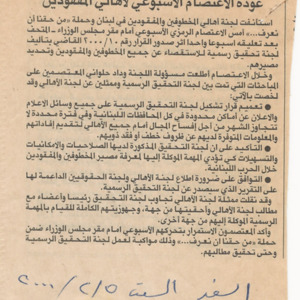 عودة الاعتصام الأسبوعي لأهالي المفقودين
استأنفت لجنة أهالي المخطوفين والمفقودين في لبنان وحملة «من حقنا أن
نعرف...»، أمس الاعتصام الرمزي الأسبوعي أمام مقر مجلس الوزراء ـ المتحف
بعد تعليقه أسبوعا واحدا اثر صدور القرار رقم ٢٠٠٠/١٠ القاضي بتأليف
لجنة تحقيق رسمية للاستقصاء عن جميع المخطوفين والمفقودين وتحديد
مصيرهم.
وخلال الاعتصام أطلعت مسؤولة اللجنة وداد حلواني المعتصمين على
المباحثات التي تمت بين لجنة التحقيق الرسمية وممثلين عن لجنة الأهالي وقد
تميزت بالآتي:
● تعميم قرار تشكيل لجنة التحقيق الرسمية على جميع وسائل الاعلام
والاعلان عن أماكن محدودة في كل المحافظات اللبنانية وفي فترة محددة لا
تتجاوز الشهر من أجل إفساح المجال امام جميع الأهالي لتقديم إفاداتهم
والمعلومات المتوفرة لديهم عن ظروف خطف او فقد ذويهم.
● التأكيد على ان لجنة التحقيق المذكورة لديها الصلاحيات والإمكانيات
والتسهيلات كي تؤدي المهمة الموكلة إليها لمعرفة مصير المخطوفين والمفقودين
خلال الحرب اللبنانية.
● التوافق على ضرورة اطلاع لجنة الأهالي واللجنة الحقوقية الداعمة لها
على التقرير الذي سيصدر عن لجنة التحقيق الرسمية.
وقد نقلت ممثلة لجنة الأهالي تجاوب لجنة التحقيق رئيسا وأعضاء مع
مطالب لجنة الأهالي وأحقيتها من جهة، وجهوزيتهم الكاملة للقيام بالمهمة
الرسمية الموكلة إليهم من جهة أخرى.
وأكد المعتصمون الاستمرار بتحركهم الأسبوعي امام مقر مجلس الوزراء ضمن
حملة «من حقنا ان نعرف...»، وذلك مواكبة لعمل لجنة التحقيق الرسمية
وحتى تحقيق مطالبهم.
السفير السبت ٢٠٠٠/٢/٥